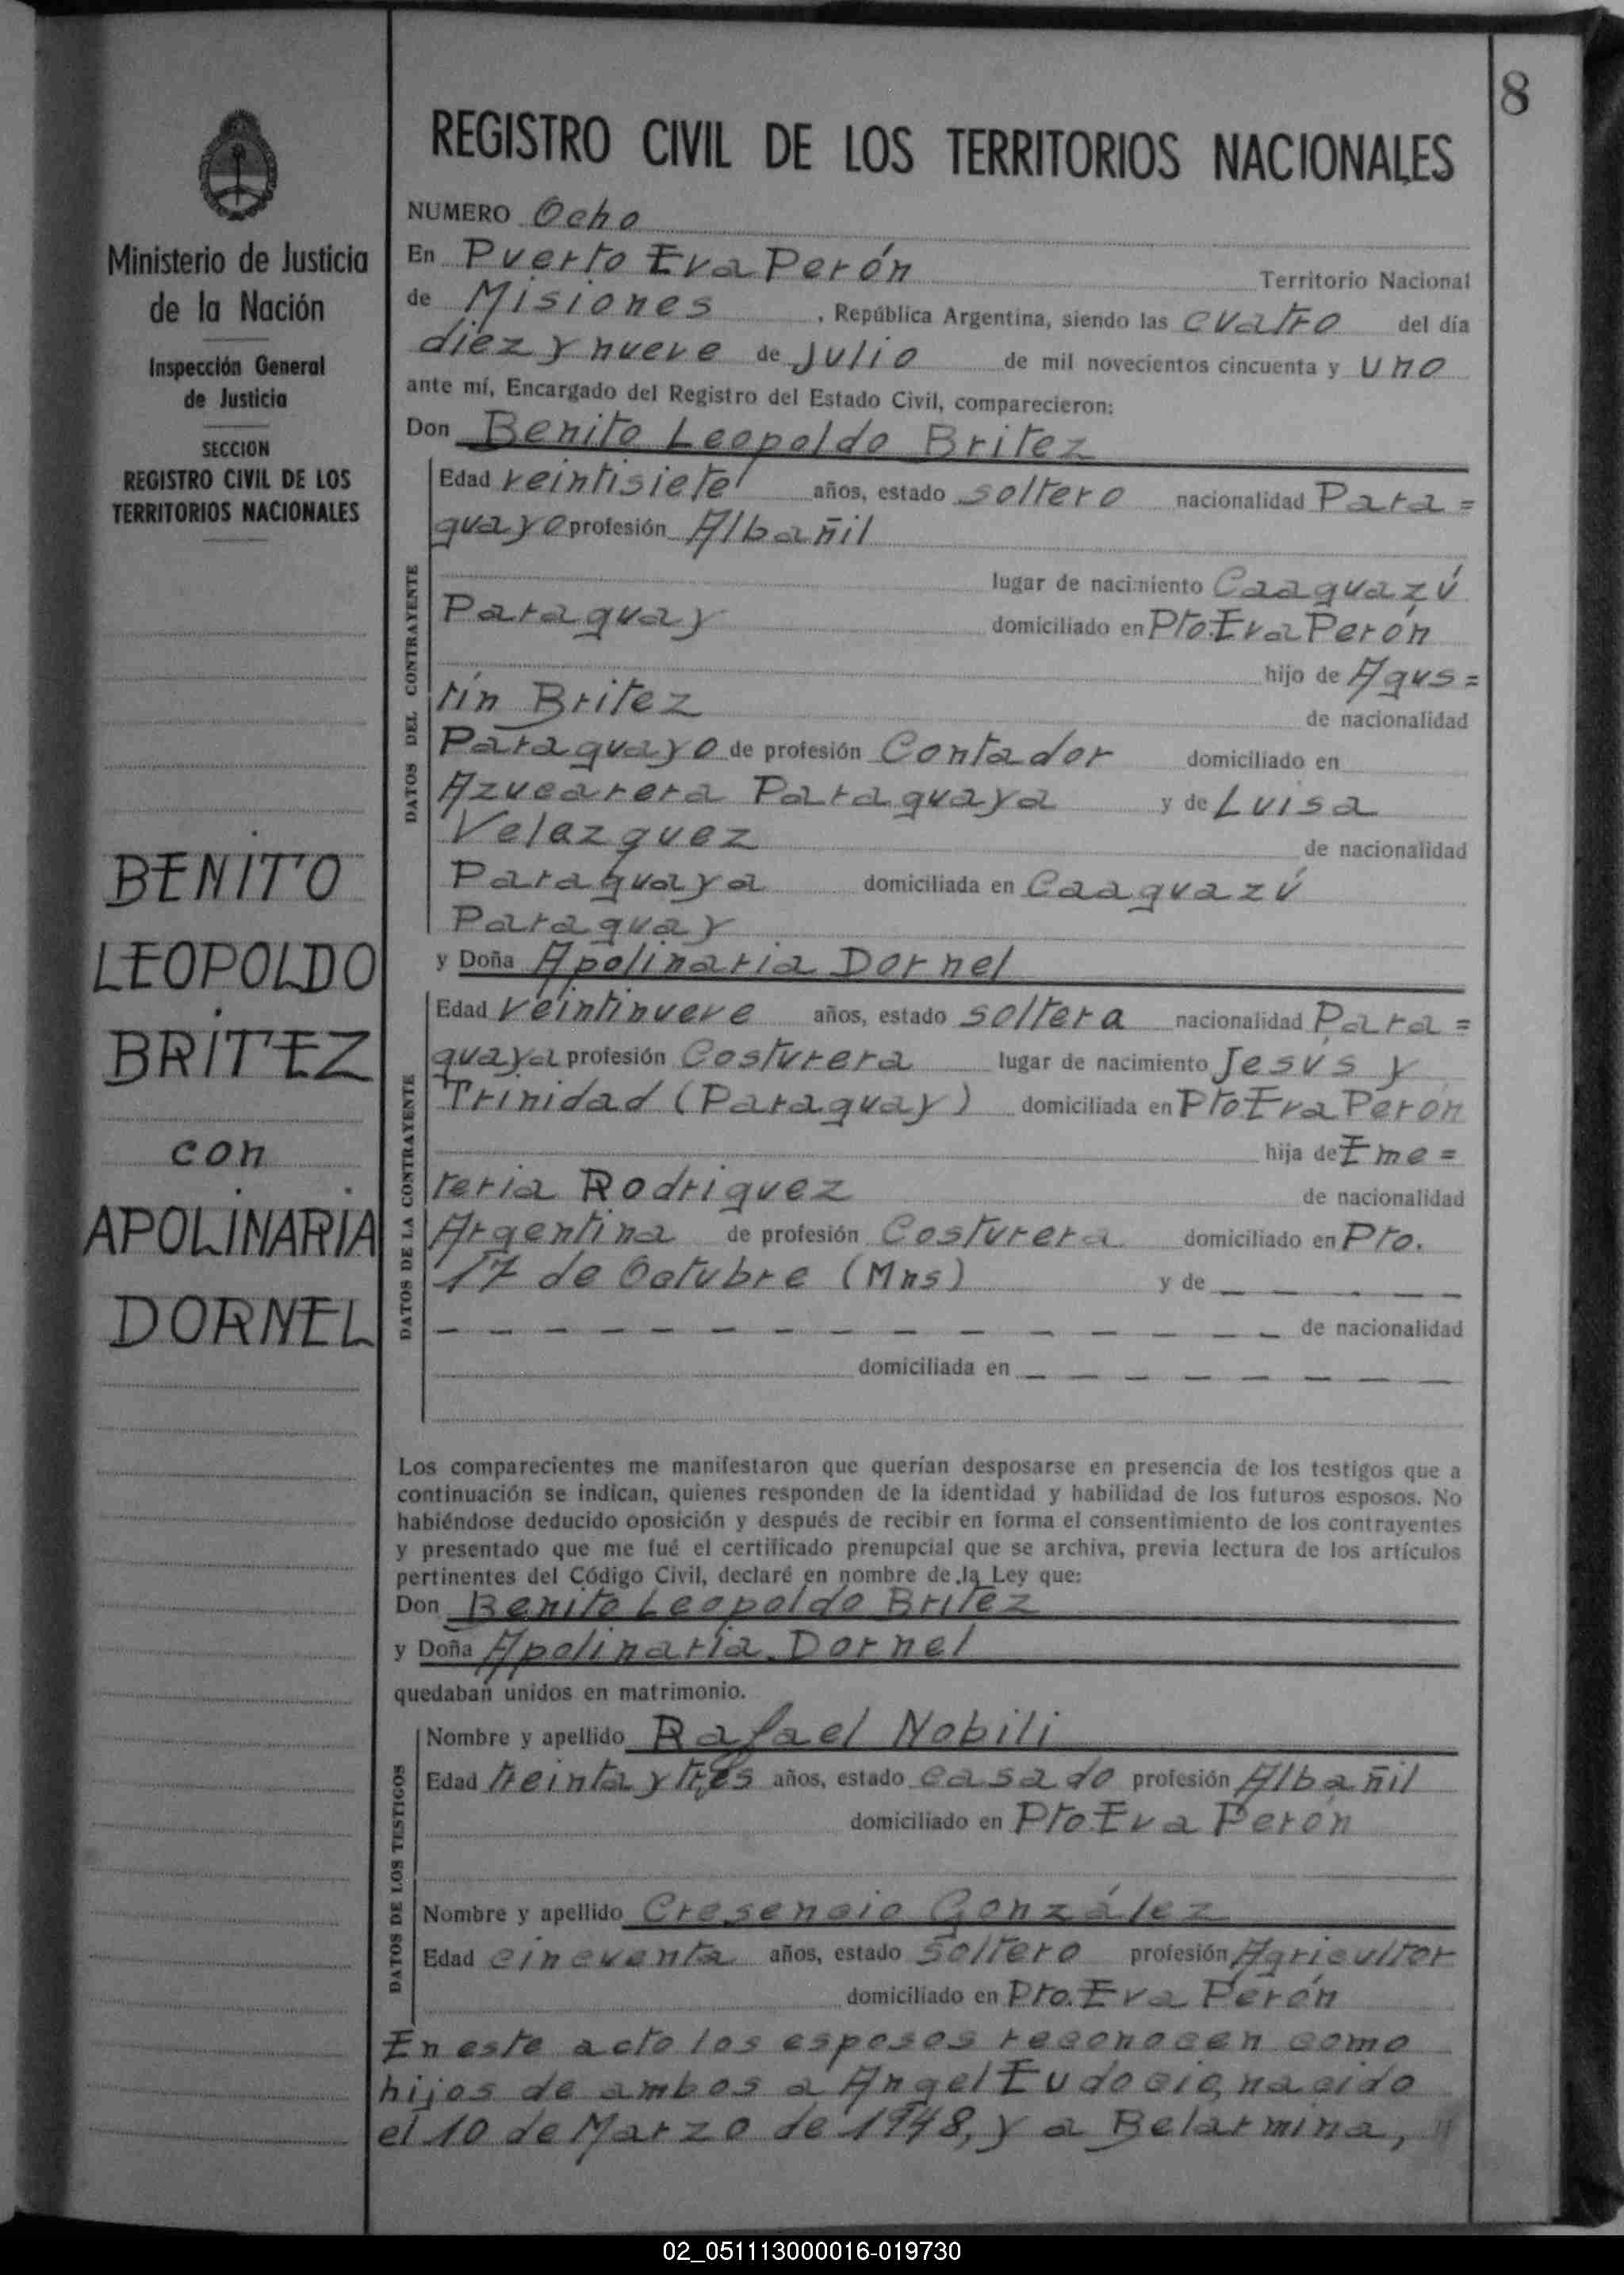 8
REGISTRO CIVIL DE LOS TERRITORIOS NACIONALES
Ministerio de Justicia
de la Nación
Inspección General
de Justicia
SECCION
REGISTRO CIVIL DE LOS
TERRITORIOS NACIONALES
BENITO
LEOPOLDO
BRITEZ
con
APOLINARIA
DORNEL
NUMERO Ocho
En Puerto Eva Perón Territorio Nacional
de Misiones , República Argentina, siendo las cuatro del día
diez y nueve de Julio de mil novecientos cincuenta y uno
ante mí, Encargado del Registro del Estado Civil, comparecieron:
Don Benito Leopoldo Britez
DATOS DEL CONTRAYENTE
Edad veintisiete años, estado soltero nacionalidad Para=
guayo profesión Albañil
lugar de nacimiento Caaguazú
Paraguay domiciliado en Pto. Eva Perón
hijo de Agus=
tín Britez de nacionalidad
Paraguayo de profesión Contador domiciliado en
Azucarera Paraguaya y de Luisa
Velazquez de nacionalidad
Paraguaya domiciliada en Caaguazú
Paraguay
y Doña Apolinaria Dornel
DATOS DE LA CONTRAYENTE
Edad veintinueve años, estado soltera nacionalidad Para=
guaya profesión Costurera lugar de nacimiento Jesús y
Trinidad (Paraguay) domiciliada en Pto Eva Perón
hija de Eme=
teria Rodriguez de nacionalidad
Argentina de profesión Costurera domiciliado en Pto.
17 de Octubre (Mns) y de — — — — —
— — — — — — — — — — — — — — — de nacionalidad
domiciliada en — — — — — — — —
Los comparecientes me manifestaron que querían desposarse en presencia de los testigos que a
continuación se indican, quienes responden de la identidad y habilidad de los futuros esposos. No
habiéndose deducido oposición y después de recibir en forma el consentimiento de los contrayentes
y presentado que me fué el certificado prenupcial que se archiva, previa lectura de los artículos
pertinentes del Código Civil, declaré en nombre de la Ley que:
Don Benito Leopoldo Britez
y Doña Apolinaria Dornel
quedaban unidos en matrimonio.
DATOS DE LOS TESTIGOS
Nombre y apellido Rafael Nobili
Edad treinta y tres años, estado casado profesión Albañil
domiciliado en Pto. Eva Perón
Nombre y apellido Cresencio González
Edad cincuenta años, estado soltero profesión Agricultor
domiciliado en Pto. Eva Perón
En este acto los esposos reconocen como
hijos de ambos a Angel Eudocio, nacido
el 10 de Marzo de 1948, y a Belarmina, "
02_051113000016-019730